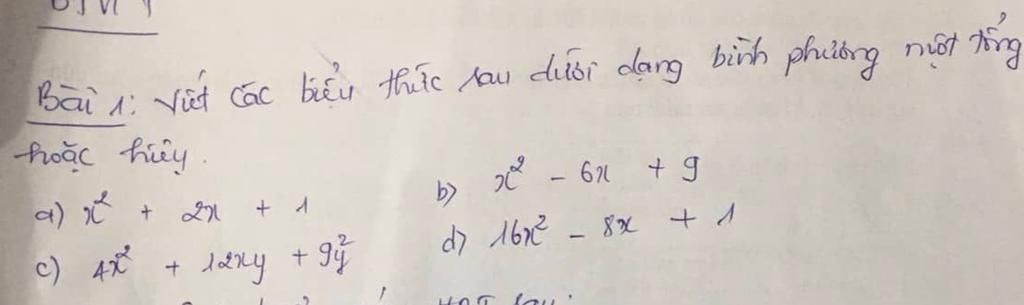 Bài 1: Viết các biểu thức sau dưới dạng bình phương một tổng
hoặc hiệu.
a) x² + 2x + 1
b) x² - 6x + 9
c) 4x² + 12xy + 9y²
d) 16x² - 8x + 1